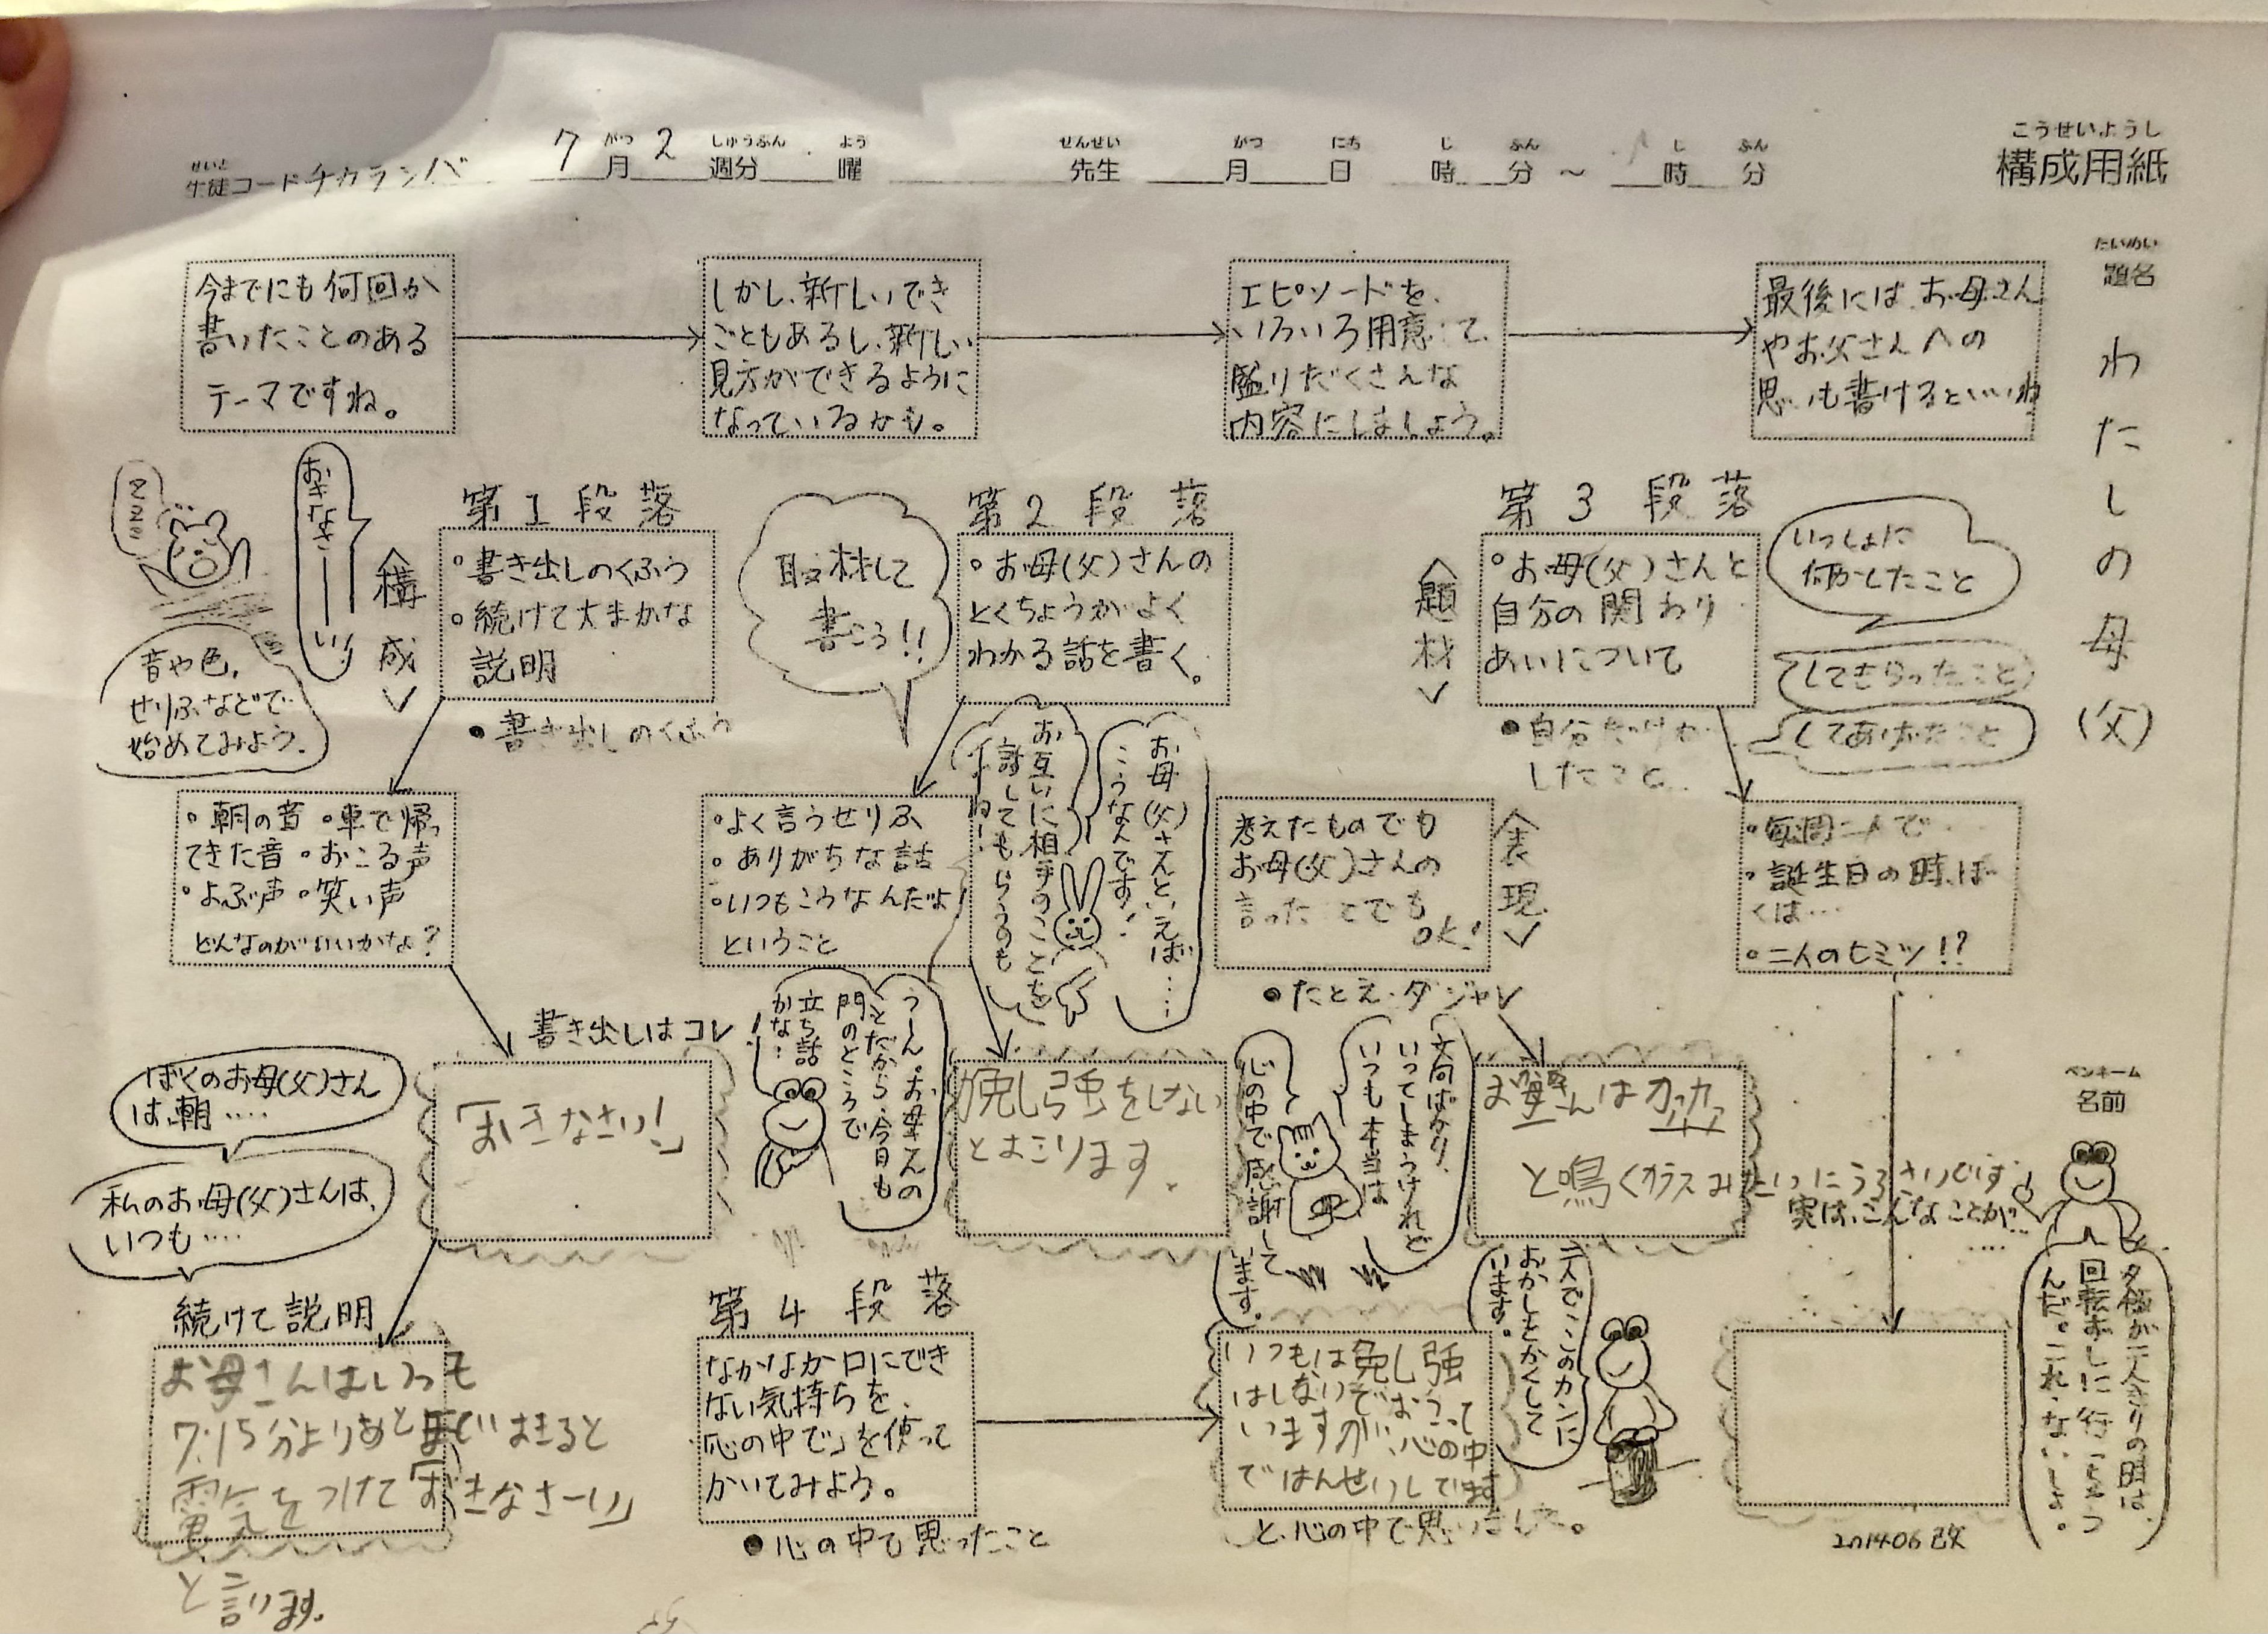 こうせいようし
構成用紙
せいと
生徒コード チカラシバ
がつ しゅうぶん よう
7月2週分 曜
せんせい
先生
がつ にち じ ふん じ ふん
月 日 時 分 ～ 時 分
たいめい
題名
わたしの母(父)
今までにも何回か
書いたことのある
テーマですね。
しかし、新しいでき
ごともあるし、新しい
見方ができるように
なっているかも。
エピソードを、
いろいろ用意して
盛りだくさんな
内容にしましょう。
最後には、お母さん
やお父さんへの
思いも書けるといいね
zzz
おきなさーーい!
<構成>
音や色、
せりふなどで
始めてみよう。
第1段落
・書き出しのくふう
・続けて大まかな
説明
●書き出しのくふう
取材して
書こう!!
第2段落
・お母(父)さんの
とくちょうがよく
わかる話を書く。
<題材>
第3段落
・お母(父)さんと
自分の関わり
あいについて
いっしょに
何かしたこと
してもらったこと
してあげたこと
●自分だけが
したこと
・朝の音 ・車で帰っ
てきた音 ・おこる声
・よぶ声 ・笑い声
どんなのがいいかな?
・よく言うせりふ
・ありがちな話
・いつもこうなんだよ
ということ
お互いに相手のことを
話してもらうのも
イイね!
お母(父)さんといえば……
こうなんです!
考えたものでも
お母(父)さんの
言ったことでも
OK!
<表現>
●たとえ・ダジャレ
・毎週二人で…
・誕生日の時、ぼ
くは…
・二人のヒミツ!?
書き出しはコレ!
ぼくのお母(父)さん
は、朝……
私のお母(父)さんは、
いつも……
「おきなさい!」
うーん。お母さんの
ことだから、今日も
門のところで
立ち話
かな…
強をしない
とおこります。
文句ばかり、
いってしまうけれど
いつも本当は
心の中で感謝して
います。
お母さんはカァカァ
と鳴くカラスみたいにうるさいです
実は、こんなことが…
……
ペンネーム
名前
続けて説明
お母さんはいつも
7:15分より
電気をつけて「おきなさーい」
と言います。
第4段落
なかなか口にでき
ない気持ちを、
「心の中で」を使って
かいてみよう。
●心の中で思ったこと
いつもは 強
はしないぞでおこって
いますが、心の中
ではんせいしてます
と、心の中で思いました。
二人でこのカンに
おかしをかくして
います。
父が二人きりの時は、
回転ずしに行こうっ
んだ。これ、ないしょ。
2014.06改